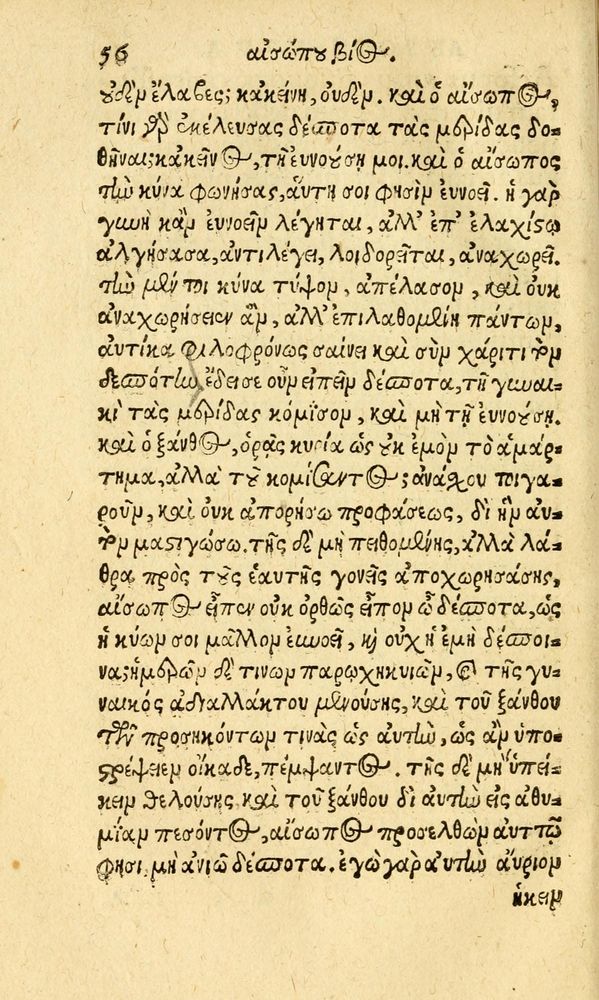 56 αἰσώπου βίος.
οὐδὲν ἔλαβες; κἀκείνη, οὐδέν. καὶ ὁ αἴσωπος,
τίνι γὰρ ἐκέλευσας δέσποτα τὰς μερίδας δο-
θῆναι; κἀκεῖνος, τῇ εὐνούσῃ μοι. καὶ ὁ αἴσωπος
τὴν κύνα φωνήσας, αὕτη σοι φησὶν εὐνοεῖ. ἡ γὰρ
γυνὴ κἂν εὐνοεῖν λέγηται, ἀλλ' ἐπ' ἐλαχίστῳ
ἀλγήσασα, ἀντιλέγει, λοιδορεῖται, ἀναχωρεῖ.
τὴν μέν τοι κύνα τύψον, ἀπέλασον, καὶ οὐκ
ἀναχωρήσειεν ἂν, ἀλλ' ἐπιλαθομένη πάντων,
αὐτίκα φιλοφρόνως σαίνει καὶ σὺν χάριτι τὸν
δεσπότην, ἔδει σε οὖν εἰπεῖν δέσποτα, τῇ γυναι-
κὶ τὰς μερίδας κόμισον, καὶ μὴ τῇ εὐνούσῃ.
καὶ ὁ ξάνθος, ὁρᾷς κυρία ὡς οὐκ ἐμὸν τὸ ἁμάρ-
τημα, ἀλλὰ τοῦ κομίσαντος; ἀνάσχου τοιγα-
ροῦν, καὶ οὐκ ἀπορήσω προφάσεως, δι ἣν αὐ-
τὸν μαστιγώσω. τῆς δὲ μὴ πειθομένης, ἀλλὰ λά-
θρα πρὸς τοὺς ἑαυτῆς γονεῖς ἀποχωρησάσης,
αἴσωπος εἶπεν οὐκ ὀρθῶς εἶπον ὦ δέσποτα, ὡς
ἡ κύων σοι μᾶλλον εὐνοεῖ, καὶ οὐχ ἡ ἐμὴ δέσποι-
να; ἡμερῶν δὲ τινων παρῳχηκυιῶν, καὶ τῆς γυ-
ναικὸς ἀδιαλλάκτου μενούσης, καὶ τοῦ ξάνθου
τῶν προσηκόντων τινὰς ὡς αὐτὴν, ὡς ἂν ὑπο-
στρέψειεν οἴκαδε, πέμψαντος. τῆς δὲ μὴ ὑπεί-
κειν θελούσης καὶ τοῦ ξάνθου δι αὐτὴν εἰς ἀθυ-
μίαν πεσόντος, αἴσωπος προσελθὼν αὐτῷ
φησι, μὴ ἀνιῶ δέσποτα. ἐγὼ γὰρ αὐτὴν αὔριον
ἥκειν